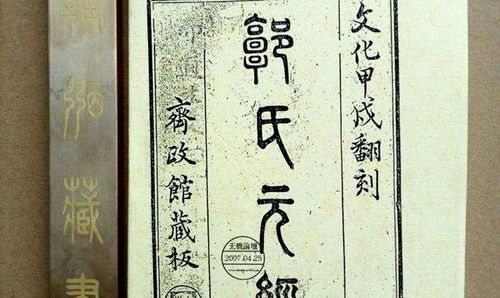 文化甲戌翻刻
郭氏元經
齊政館藏板
藏書
天機論壇
2007.04.23